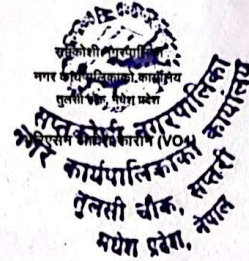 सप्तकोशी नगरपालिका
नगर कार्यपालिकाको कार्यालय
तुलसी चोक, मधेश प्रदेश
(VO4)
सप्तकोशी नगरपालिका
नगर कार्यपालिकाको कार्यालय
तुलसी चौक, सप्तरी
मधेश प्रदेश, नेपाल